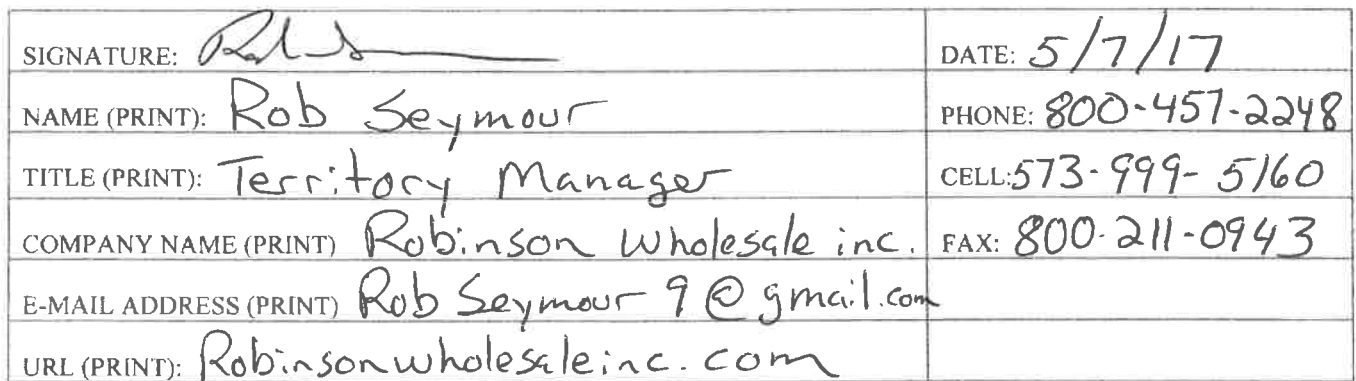 SIGNATURE: DATE: 5/7/17
NAME (PRINT): Rob Seymour PHONE: 800-457-2248
TITLE (PRINT): Territory Manager CELL: 573-999-5160
COMPANY NAME (PRINT) Robinson Wholesale inc. FAX: 800-211-0943
E-MAIL ADDRESS (PRINT) Rob Seymour 9 @ gmail.com
URL (PRINT): Robinsonwholesaleinc.com